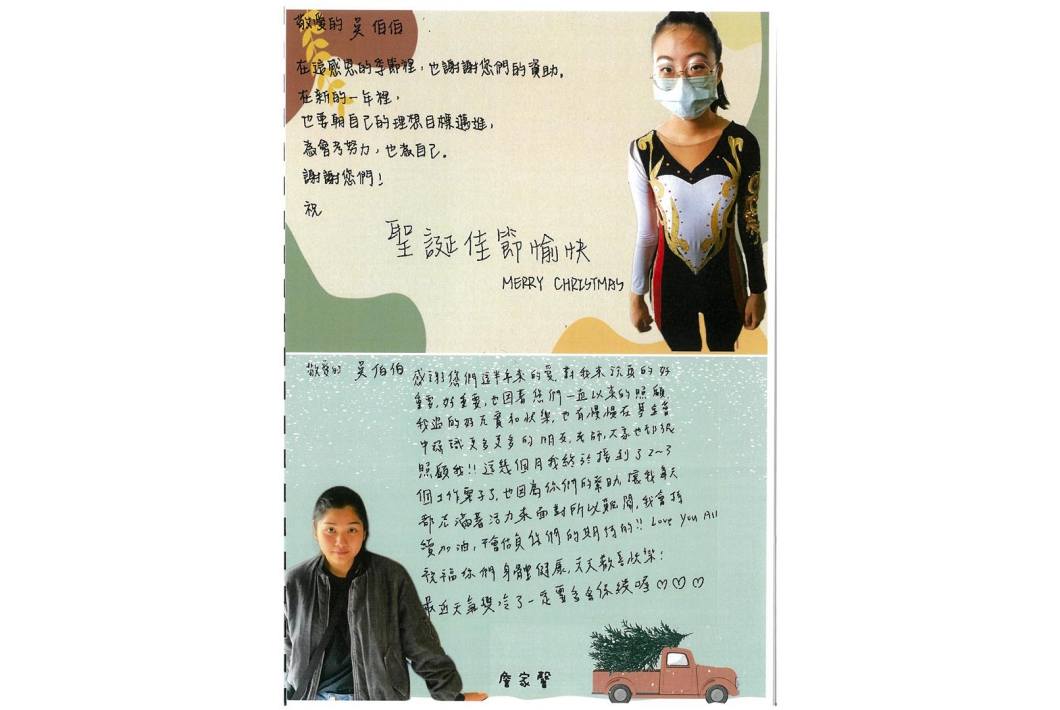 敬愛的 吳伯伯
在這感恩的季節裡，也謝謝您們的資助。
在新的一年裡，
也要朝自己的理想目標邁進，
為會考努力，也為自己。
謝謝您們！
祝
聖誕佳節愉快
MERRY CHRISTMAS
敬愛的 吳伯伯
感謝您們這半年來的愛，對我來說真的好
重要，好重要，也因著您們一直以來的照顧
我過的好充實和快樂，也有慢慢在基金會
中認識更多更多的朋友，老師，大家也都很
照顧我!! 這幾個月我終於接到了2~3
個工作案子了，也因為你們的幫助，讓我每天
都充滿著活力來面對所以難關，我會持
續加油，不會辜負你們的期待的!! Love You All
祝福你們身體健康，天天歡喜快樂！
最近天氣變冷了一定要多多保暖喔♡♡♡
詹家馨